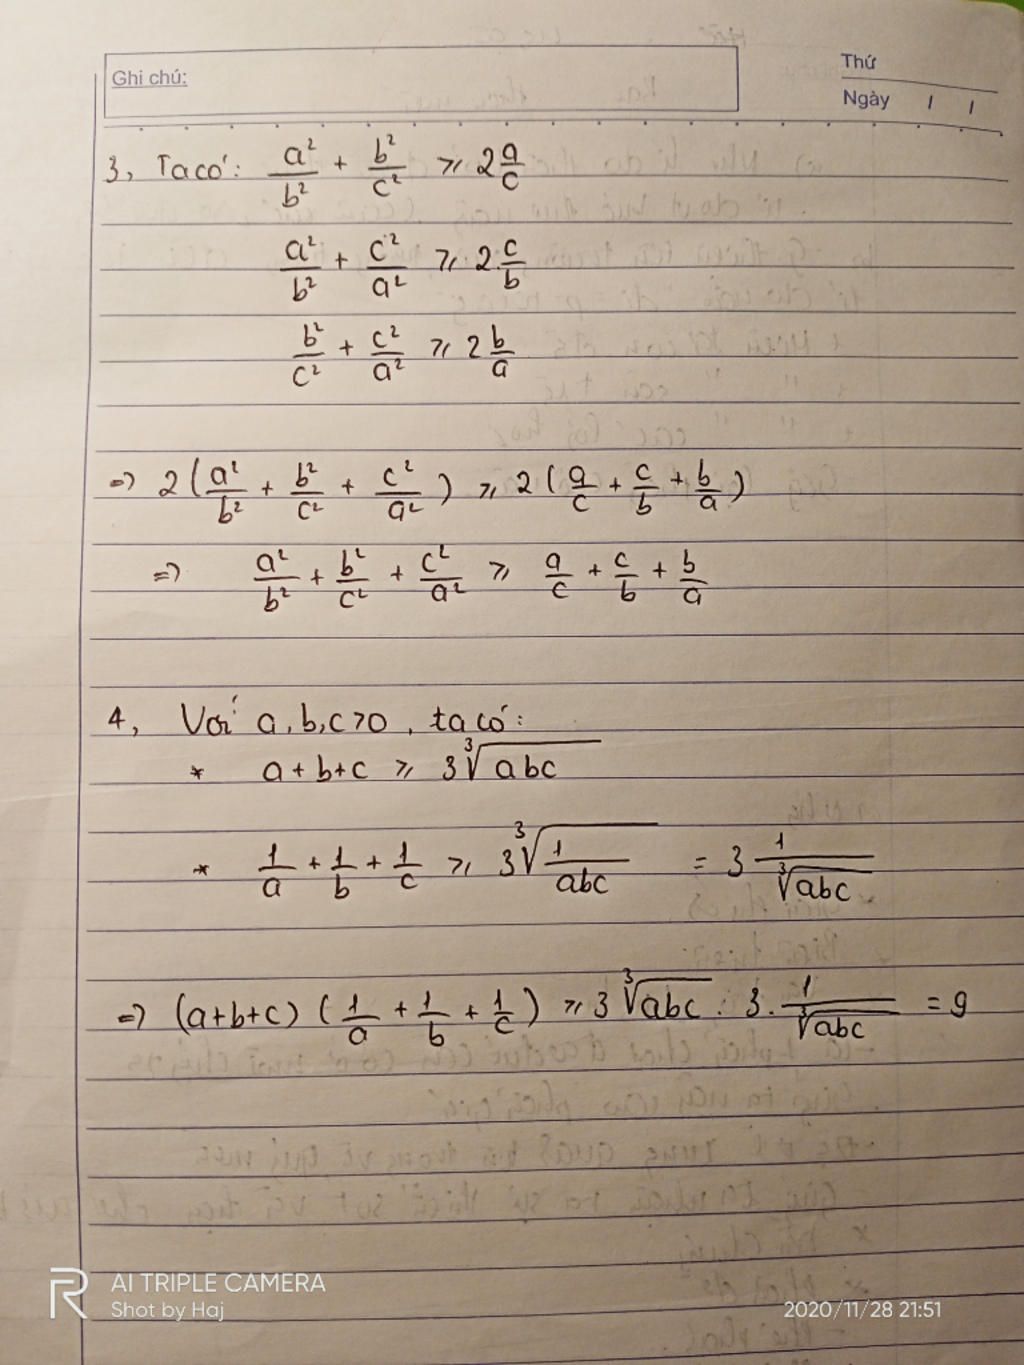 Ghi chú:
Thứ
Ngày / /
3, Ta có: a²/b² + b²/c² ⩾ 2 a/c
a²/b² + c²/a² ⩾ 2 c/b
b²/c² + c²/a² ⩾ 2 b/a
=> 2 ( a²/b² + b²/c² + c²/a² ) ⩾ 2 ( a/c + c/b + b/a )
=> a²/b² + b²/c² + c²/a² ⩾ a/c + c/b + b/a
4, Với a, b, c > 0, ta có:
* a + b + c ⩾ 3 ∛abc
* 1/a + 1/b + 1/c ⩾ 3 ∛(1/abc) = 3 1/∛abc
=> (a+b+c) ( 1/a + 1/b + 1/c ) ⩾ 3 ∛abc . 3 . 1/∛abc = 9
AI TRIPLE CAMERA
Shot by Haj
2020/11/28 21:51